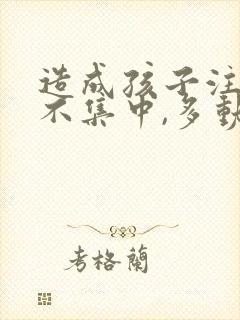 造成孩子注
不集中,多動
考格蘭